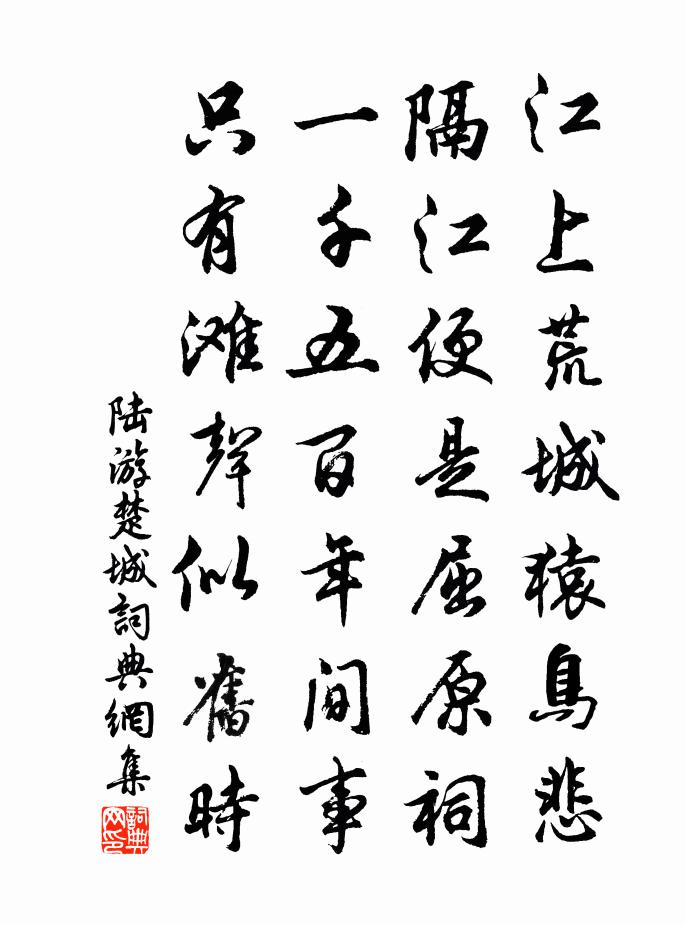 江上荒城猿鳥悲
隔江便是屈原祠
一千五百年间事
只有滩聲似舊時
陆游楚城詞典網集
詞典网印